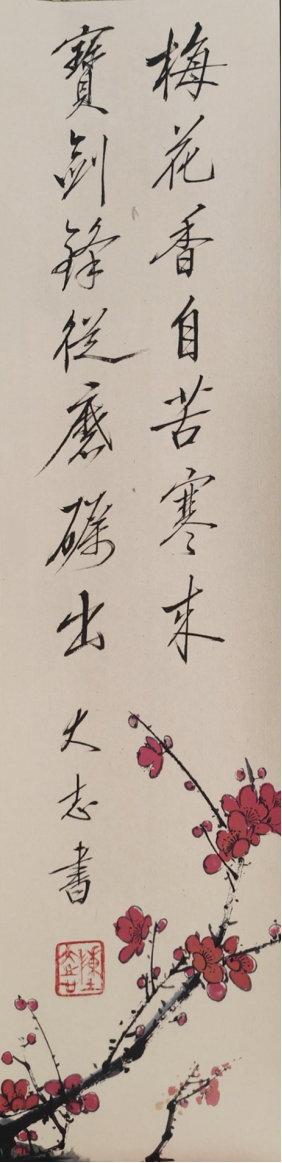 梅花香自苦寒来
寶劍鋒從磨礪出
大志書